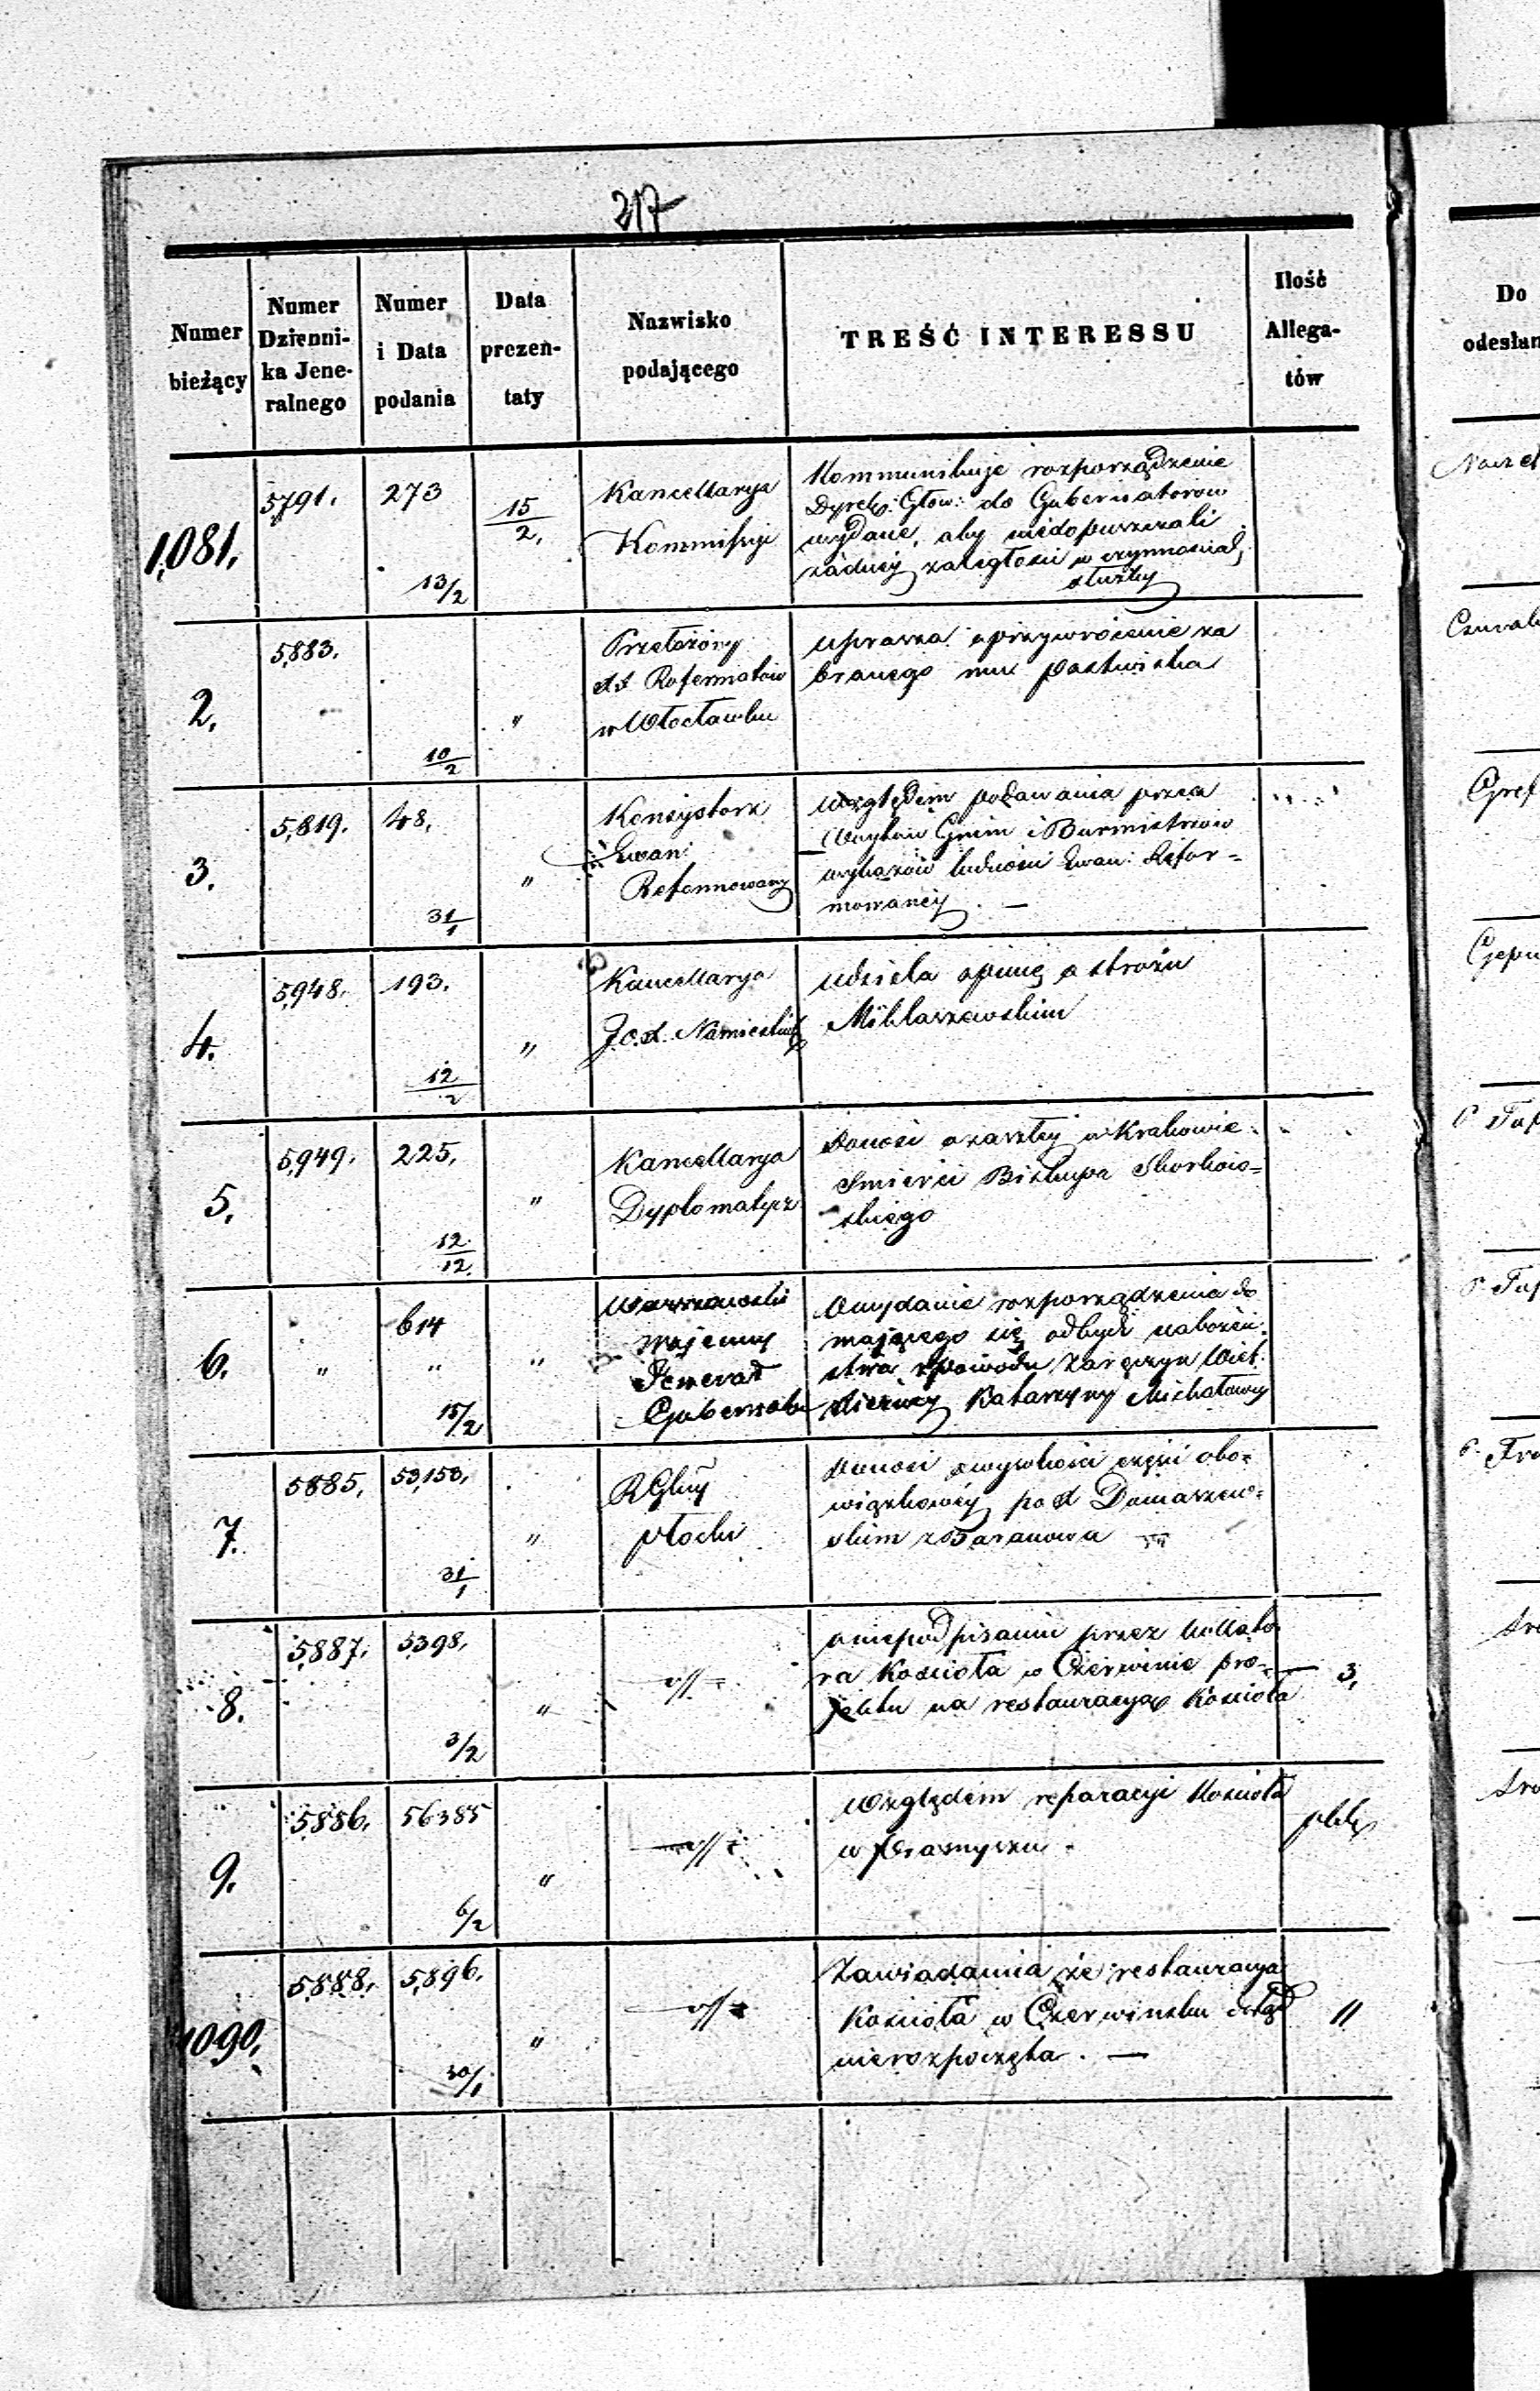 217
Numer
bieżący
Numer
Dzienni-
ka Jene-
ralnego
Numer
i Data
podania
Data
prezen-
taty
Nazwisko
podającego
TREŚĆ INTERESSU
Ilość
Allega-
tów
Do
odesłan
1,081.
5,791.
273
13/2
15/2.
Kancellarya
Kommissyi
Kommunikuje rozporządzenie
Dyrek: Głów: do Gubernatorow
wydane, aby niedopuszczali
żadnéj zaległości w czynnościach
służby
2.
5,883.
10/2
"
Przełożony
Reformatów
w Włocławku
uprasza o przywrócenie za
branego mu pastwiska
3.
5,819.
48.
31/1
"
Konsystorz
Ewan:
Reformowany
Względem podawania przez
Wojtów Gmin i Burmistrzów
wykazów ludności Ewan: Refor=
mowanéj. —
4.
5,948.
193.
12/2
"
Kancellarya
J.O.X. Namiestnika
Udziela opinię o stróżu
Miklaszewskim
5.
5,949.
225.
12/12
"
Kancellarya
Dyplomatycz
Donosi o zaszłéj w Krakowie
śmierci Biskupa Skorkow=
skiego
6.
"
614
"
15/2
"
Warszawski
Wojenny
Jenerał
Gubernator
O wydanie rozporządzenia do
mającego się odbyć nabożeń
stwa z powodu zaręczyn Wiel.
Katarzyny Michałowny
7.
5885.
53,153.
31/1
"
RGlny
Płocki
Donosi o wysokości części obo=
wiązkowéj po X Domaszew=
skim z Baranowa
8.
5,887.
5,398.
3/2
"
o niepodpisaniu przez kollato
ra Kościoła w Czerwinie pro=
jektu na restauracyą Kościoła
3.
9.
5,886.
56385
6/2
"
Względem reparacyi Kościoła
w Przasnyszu.
1090.
5,888.
5,896.
30/1
"
Zawiadamia że restauracya
Kościoła w Czerwińsku dotąd
nierozpoczęta. —
11